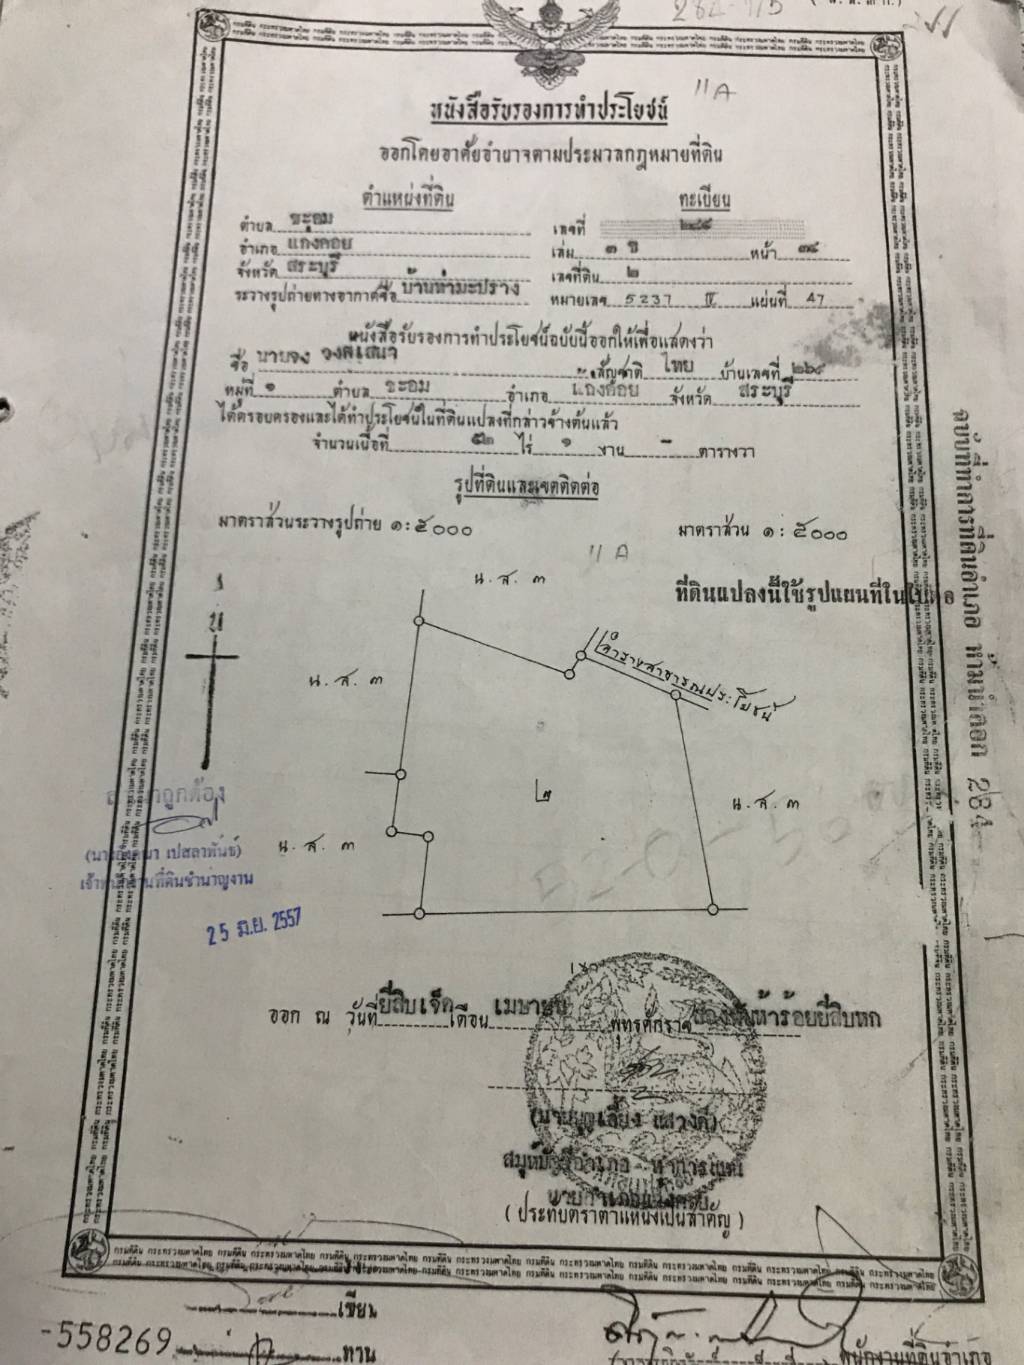 284
11 A
หนังสือรับรองการทำประโยชน์
ออกโดยอาศัยอำนาจตามประมวลกฎหมายที่ดิน
ตำแหน่งที่ดิน ทะเบียน
ตำบล ชะอม เลขที่ ๒๘๔
อำเภอ แก่งคอย เล่ม ๓ ปี หน้า ๓๔
จังหวัด สระบุรี เลขที่ดิน ๒
ระวางรูปถ่ายทางอากาศชื่อ บ้านท่ามะปราง หมายเลข 5237 IV แผ่นที่ 47
หนังสือรับรองการทำประโยชน์ฉบับนี้ออกให้เพื่อแสดงว่า
ชื่อ นายจง วงสเสนา สัญชาติ ไทย บ้านเลขที่ ๒๖๙
หมู่ที่ ๑ ตำบล ชะอม อำเภอ แก่งคอย จังหวัด สระบุรี
ได้ครอบครองและได้ทำประโยชน์ในที่ดินแปลงที่กล่าวข้างต้นแล้ว
จำนวนเนื้อที่ ๕๒ ไร่ ๑ งาน - ตารางวา
รูปที่ดินและเขตติดต่อ
มาตราส่วนระวางรูปถ่าย ๑ : ๕๐๐๐ มาตราส่วน ๑ : ๕๐๐๐
11 A
น. ส. ๓
ที่ดินแปลงนี้ใช้รูปแผนที่ใน
น
ลำรางสาธารณประโยชน์
น. ส. ๓
๒
น. ส. ๓
น. ส. ๓
ถูกต้อง
เปสลาพันธ์)
เจ้าพนักงานที่ดินชำนาญงาน
25 มิ.ย. 2557
ออก ณ วันที่ ยี่สิบเจ็ด เดือน เมษายน พุทธศักราช สองพันห้าร้อยยี่สิบหก
(นายบุญเลี้ยง แสวงค์)
สมุห์บัญชีอำเภอ
(ประทับตราตำแหน่งเป็นสำคัญ)
ฉบับที่ทำการที่ดินอำเภอ ห้ามนำออก 284
กรมที่ดิน กระทรวงมหาดไทย
เขียน
-558269
ทาน
พนักงานที่ดินอำเภอ